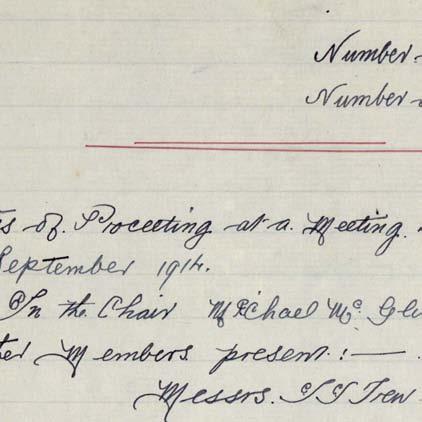 Number
Number
of Proceeting at a Meeting
September 1914.
In the Chair Michael Mc
Members present: —
Messrs.